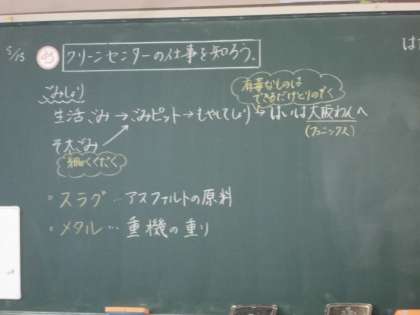 5/15
クリーンセンターの仕事を知ろう。
ごみしょり
有害なものは
できるだけとりのぞく
生活ごみ→ごみピット→もやしてしょり→はいは大阪わんへ
(フェニックス)
そ大ごみ
細かくくだく
・スラグ…アスファルトの原料
・メタル…重機の重り
は